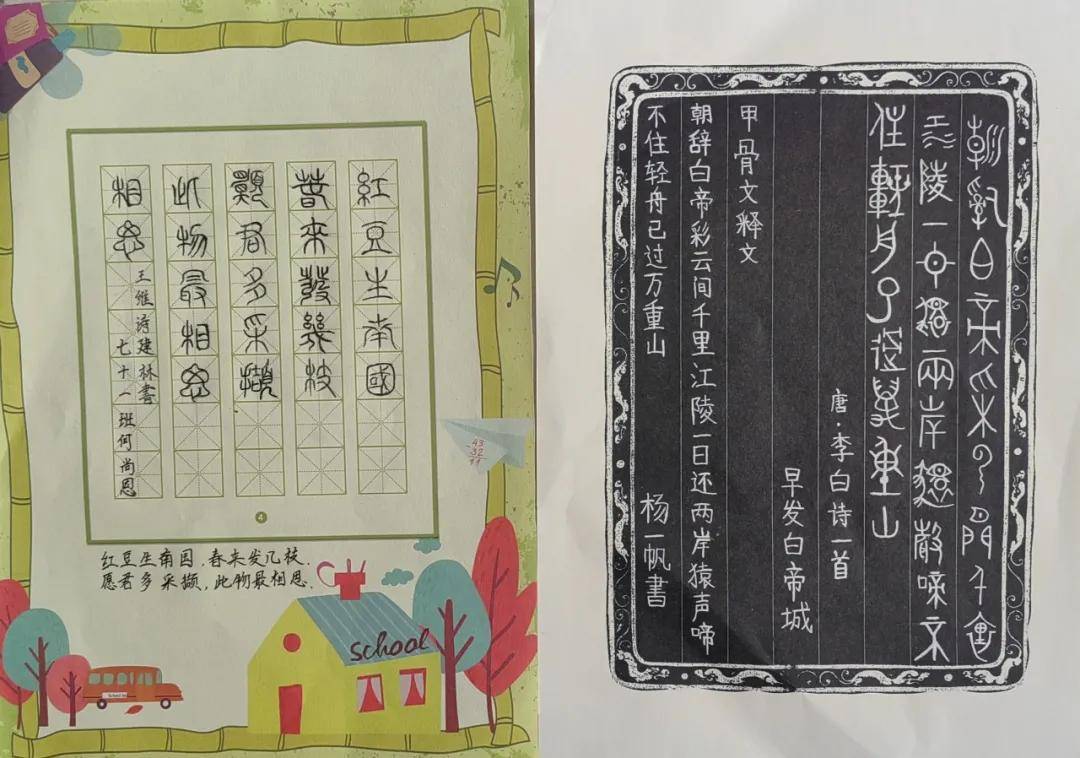 紅豆生南國
春來發幾枝
願君多采擷
此物最相思
相思
王维诗建林書
七十一班何尚恩
4
红豆生南国,春来发几枝.
愿君多采撷,此物最相思.
school
43
32
11
朝辭白帝采云間千里
江陵一日還兩岸猿聲啼不
住輕舟已過萬重山
唐·李白诗一首
早发白帝城
甲骨文释文
朝辞白帝彩云间千里江陵一日还两岸猿声啼
不住轻舟已过万重山
杨一帆書